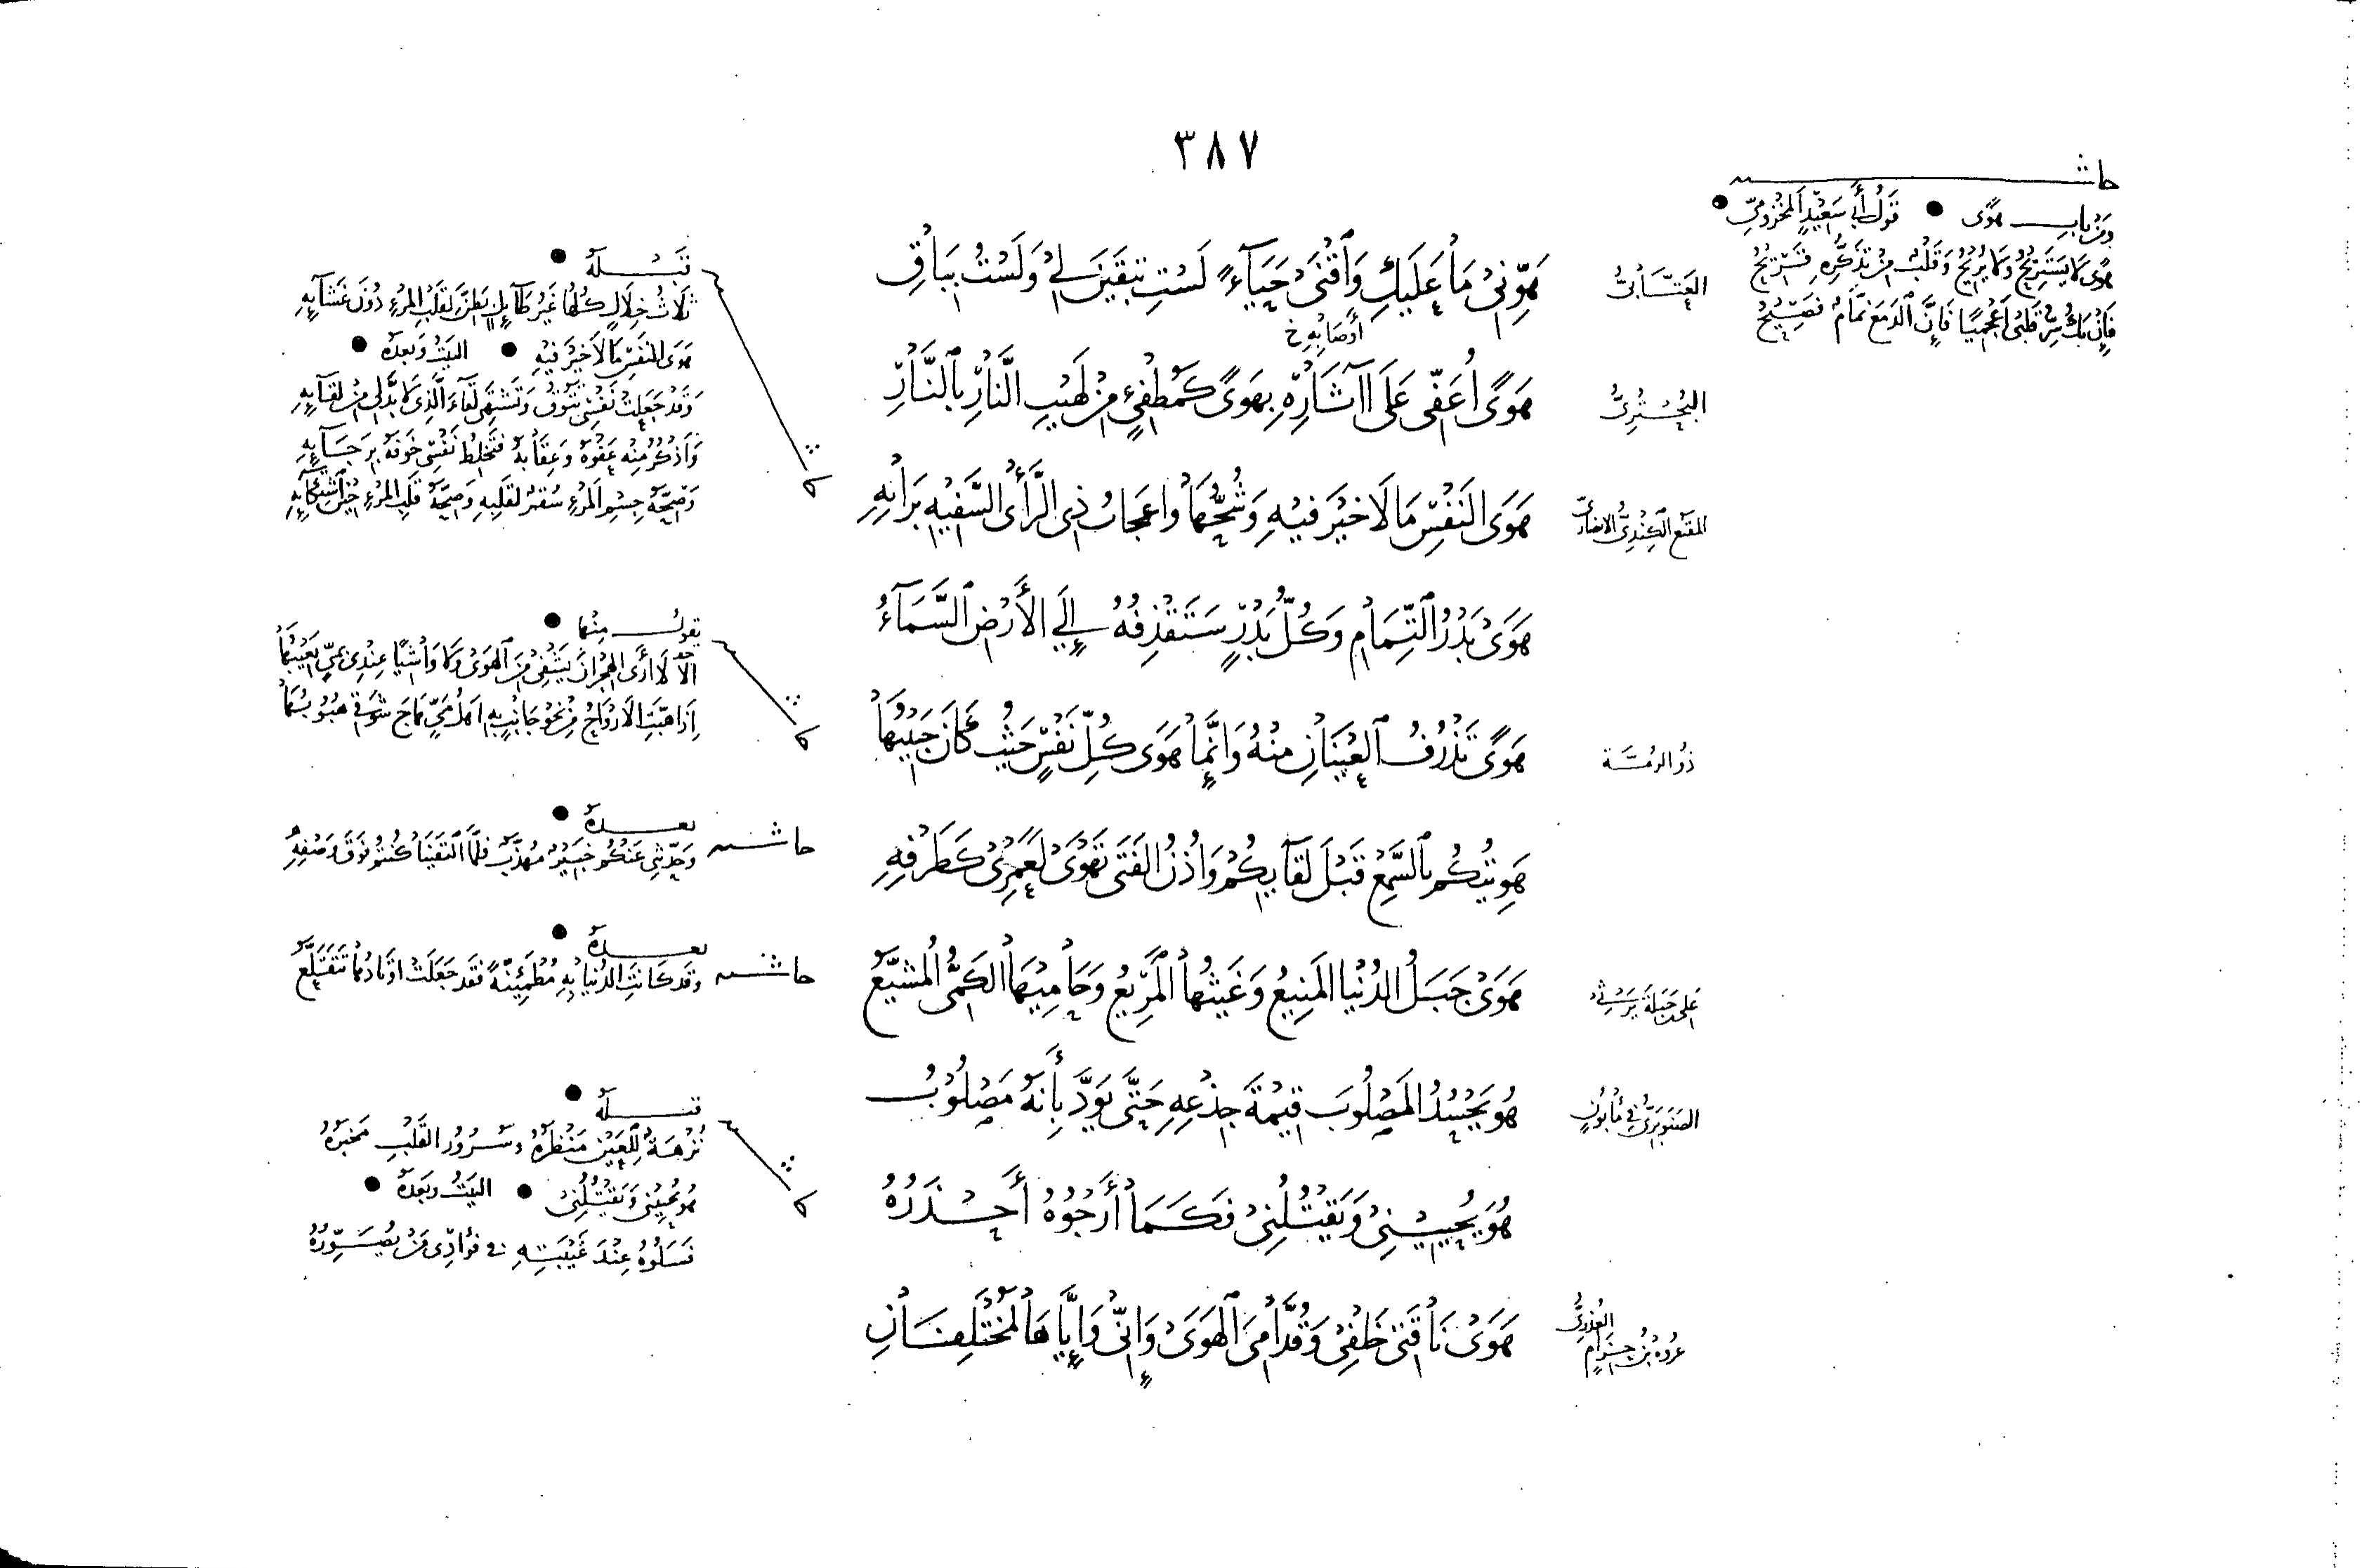 ٣٨٧
حاشية
ومن باب هوى • قول أبي سعيد المخزومي •
هوى لا يستريح ولا يريح وقلب من تذكره قريح
فإن يك سر قلبي أعجميا فإن الدمع نمام فصيح
العتابي
هَوِّنِي مَا عَلَيْكِ وَاقْنَيْ حَيَاءً لَسْتِ تَبْقَيْنَ لِي وَلَسْتُ بِبَاقِ
أوصابه خ
البحتري
هَوًى أُعَفِّى عَلَى آثَارِهِ بِهَوًى كَمُطْفِئٍ مِنْ لَهِيبِ النَّارِ بِالنَّارِ
المقنع الكندي
هَوَى النَّفْسِ مَا لَا خَيْرَ فِيهِ وَشُحُّهَا وَإِعْجَابُ ذِي الرَّأْيِ السَّفِيهِ بِرَأْيِهِ
هَوَى بَدْرُ التِّمَامِ وَكُلُّ بَدْرٍ سَتَقْذِفُهُ إِلَى الْأَرْضِ السَّمَاءُ
ذو الرمة
هَوًى تَذْرُفُ الْعَيْنَانِ مِنْهُ وَإِنَّمَا هَوَى كُلِّ نَفْسٍ حَيْثُ كَانَ حَبِيبُهَا
هَوِيتُكُمُ بِالسَّمْعِ قَبْلَ لِقَائِكُمْ وَأُذْنُ الْفَتَى تَهْوَى لَعَمْرِي كَطَرْفِهِ
علي بن جبلة يرثي
هَوَى جَبَلُ الدُّنْيَا الْمَنِيعُ وَغَيْثُهَا الْمَرِيعُ وَحَامِيهَا الْكَمِيُّ الْمُشَيَّعُ
الصنوبري في مأبون
هُوَ يَحْسُدُ الْمَصْلُوبَ قِيمَةَ جِذْعِهِ حَتَّى يَوَدَّ بِأَنَّهُ مَصْلُوبُ
هُوَ يُحْيِينِي وَيَقْتُلُنِي فَكَمَا أَرْجُوهُ أَحْذَرُهُ
عروة بن حزام العذري
هَوَى نَاقَتِي خَلْفِي وَقُدَّامِيَ الْهَوَى وَإِنِّي وَإِيَّاهَا لَمُخْتَلِفَانِ
قبله •
ثلاث خلال كلها غير طائل يطن لقلب المرء دون غشائه
هوى النفس ما لا خير فيه • البيت وبعده •
وقد جعلت نفسي تتوق وتشتهي لقاء الذي لا بد لي من لقائه
وأذكر منه عفوه وعقابه فتخلط نفسي خوفه برجائه
وصحة جسم المرء سقم لقلبه وصحة قلب المرء حين اشتكائه
يقول منها •
ألا لا أرى الهجران يشفي من الهوى ولا واشيا عندي بمي يعيبها
إذا هبت الأرواح من نحو جانب به أهل مي هاج شوقي هبوبها
حاشية
بعده •
وحدثني عنكم خبير مهذب فلما التقينا كنتم فوق وصفه
حاشية
بعده •
وقد كانت الدنيا به مطمئنة فقد جعلت أوتادها تتقلع
قبله •
نزهة للعين منظره وسرور القلب مخبره
هو يحييني ويقتلني • البيت وبعده •
فسلوه عند غيبته في فؤادي من يصوره